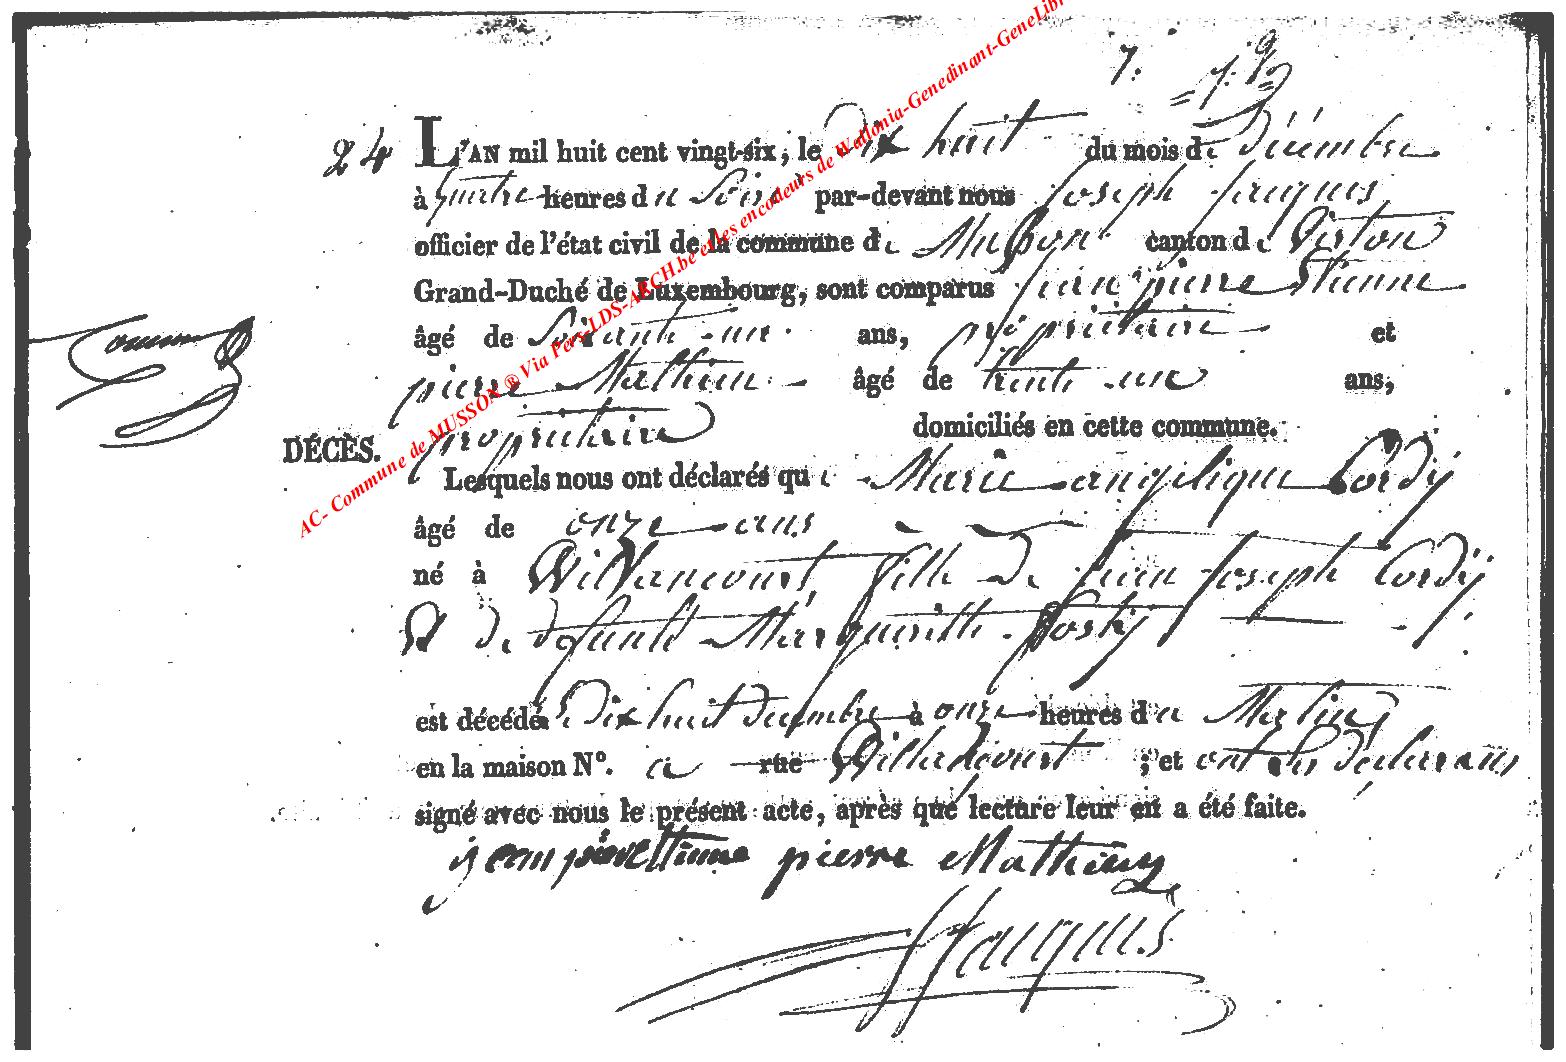 7.
24 L'AN mil huit cent vingt-six, le dix huit du mois de décembre
à quatre heures du soir par-devant nous Joseph Jacques
officier de l'état civil de la commune de Musson canton de Virton
Grand-Duché de Luxembourg, sont comparus jean pierre Etienne
âgé de Soixante un ans, propriétaire et
pierre Mathieu âgé de trente un ans,
DÉCÈS. propriétaire domiciliés en cette commune.
Lesquels nous ont déclarés que Marie angelique Cordy
âgé de onze ans
né à Willancourt, fille de jean Joseph Cordy
et de défunte Marguerite
est décédée dix huit decembre à onze heures du Matin
en la maison N°. a rue Willancourt ; et ont les déclarans
signé avec nous le présent acte, après que lecture leur en a été faite.
jean pierre Etienne pierre Mathieu
Jacques
AC- Commune de MUSSON ® Via Pers-LDS-ARCH.be et les encodeurs de Wallonia-Genedinant-GeneLibr